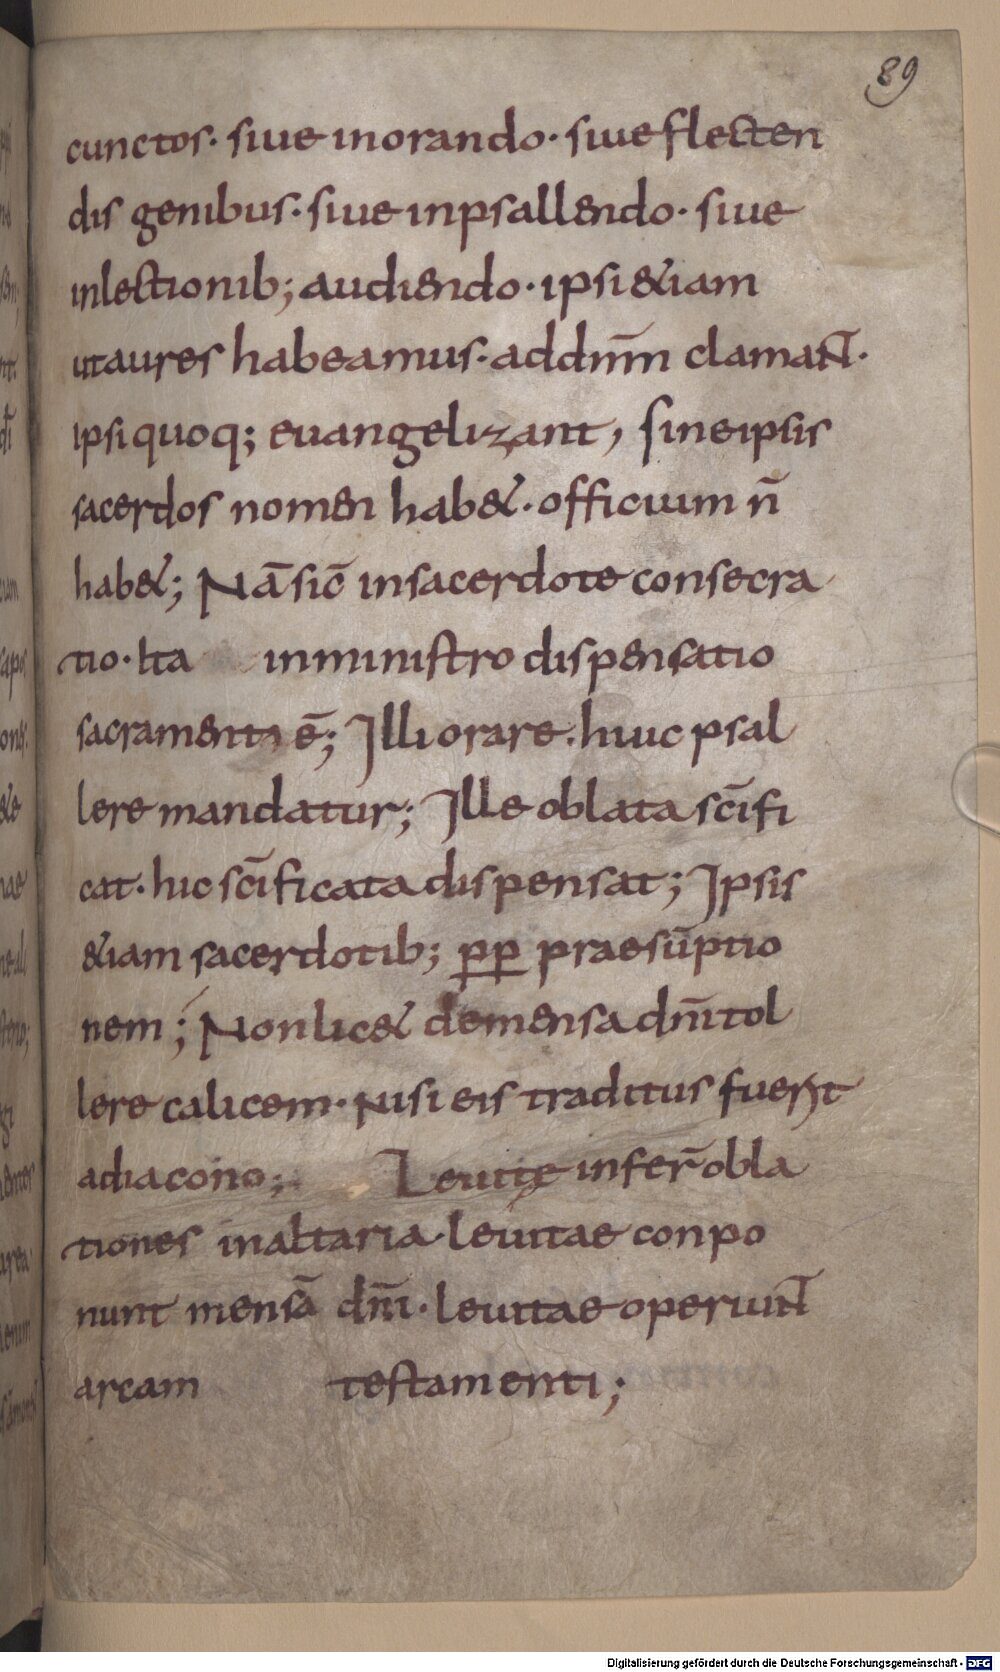 89
cunctos· siue inorando· siue flecten
dis genibus· siue inpsallendo· siue
inlectionib; audiendo· ipsi &iam
utaures habeamus· addnm̅ clamant·
ipsi quoq; euangelizant, sineipsis
sacerdos nomen hab&· officium n̅
hab&; Na̅ sic̅ insacerdote consecra
tio· Ita inministro dispensatio
sacramenti e̅; Illi orare· huic psal
lere mandatur; Ille oblata sci̅fi
cat· hic sci̅ficata dispensat; Ipsis
&iam sacerdotib; pp̱ praesu̅ptio
nem; Nonlic& demensa dni̅ tol
lere calicem· Nisi eis traditus fuerit
adiacono; Leuitę infer̅ obla
tiones inaltaria· leuitae conpo
nunt mensa̅ dni̅· leuitae operiunt
arcam testamenti;
Digitalisierung gefördert durch die Deutsche Forschungsgemeinschaft - DFG